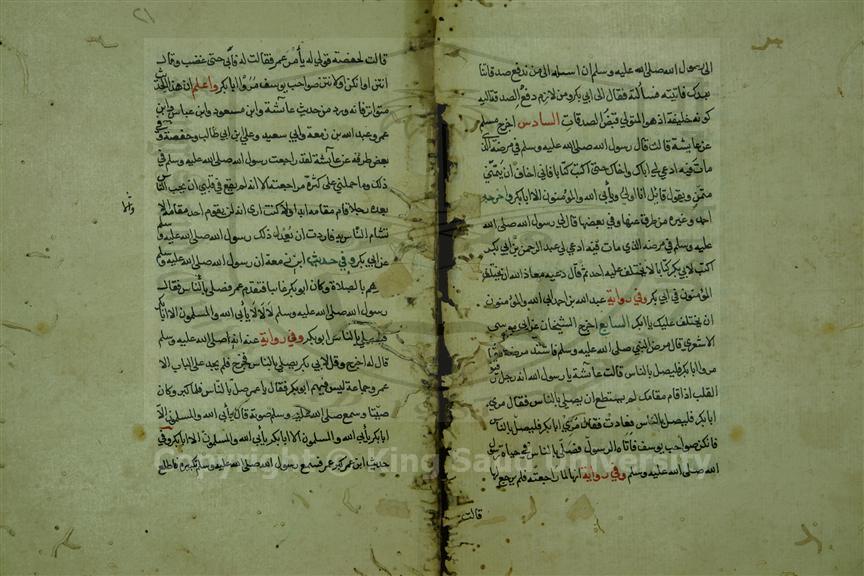 الى رسول الله صلى الله عليه وسلم ان اسئله الى من ندفع صدقاتنا
بعدك فاتيته فسألته فقال الى ابي بكر ومن لازم دفع الصدقة اليه
كونه خليفة اذ هو المتولي قبض الصدقات السادس اخرج مسلم
عن عايشة قالت قال رسول الله صلى الله عليه وسلم في مرضه الذي
مات فيه ادعي لي اباك واخاك حتى اكتب كتابا فاني اخاف ان يتمنى
متمن ويقول قائل انا اولى ويأبى الله والمؤمنون الا ابا بكر واخرجه
احمد وغيره من طرق عنها وفي بعضها قال لي رسول الله صلى الله
عليه وسلم في مرضه الذي مات فيه ادعي لي عبد الرحمن بن ابي بكر
اكتب لابي بكر كتابا لا يختلف عليه احد ثم قال دعيه معاذ الله ان يختلف
المؤمنون في ابي بكر وفي رواية عبد الله بن احمد ابى الله والمؤمنون
ان يختلف عليك يا ابا بكر السابع اخرج الشيخان عن ابي موسى
الاشعري قال مرض النبي صلى الله عليه وسلم فاشتد مرضه فقال
مروا ابا بكر فليصل بالناس قالت عائشة يا رسول الله انه رجل رقيق
القلب اذا قام مقامك لم يستطع ان يصلي بالناس فقال مري
ابا بكر فليصل بالناس فعادت فقال مري ابا بكر فليصل بالناس
فانكن صواحب يوسف فاتاه الرسول فصلى بالناس في حياة رسول
الله صلى الله عليه وسلم وفي رواية انها لما راجعته فلم يرجع لها
قالت
قالت لحفصة قولي له يأمر عمر فقالت له فابى حتى غضب وقال
انتن او انكن او لانتن صواحب يوسف مروا ابا بكر واعلم ان هذا الحديث
متواتر فانه ورد من حديث عائشة وابن مسعود وابن عباس وابن
عمر وعبد الله بن زمعة وابي سعيد وعلي بن ابي طالب وحفصة وفي
بعض طرقه عن عائشة لقد راجعت رسول الله صلى الله عليه وسلم في
ذلك وما حملني على كثرة مراجعته الا انه لم يقع في قلبي ان يحب الناس
بعده رجلا قام مقامه ابدا ولا كنت ارى انه لن يقوم احد مقامه الا
تشأم الناس به فاردت ان يعدل ذلك رسول الله صلى الله عليه وسلم
عن ابي بكر وفي حديث ابن زمعة ان رسول الله صلى الله عليه وسلم
بالصلاة وكان ابو بكر غايبا فتقدم عمر فصلى بالناس فقال
رسول الله صلى الله عليه وسلم لا لا لا يأبى الله والمسلمون الا ابا بكر
فيصلي بالناس ابو بكر وفي رواية عنه انه صلى الله عليه وسلم
قال له اخرج وقل لابي بكر يصلي بالناس فخرج فلم يجد على الباب الا
عمر وجماعة ليس فيهم ابو بكر فقال يا عمر صل بالناس فلما كبر وكان
صيتا وسمع صلى الله عليه وسلم صوته قال يأبى الله والمسلمون الا
ابا بكر يأبى الله والمسلمون الا ابا بكر يأبى الله والمسلمون الا ابا بكر وفي
حديث ابن عمر كبر عمر فسمع رسول الله صلى الله عليه وسلم تكبيره فاطلع
Copyright © King Saud University